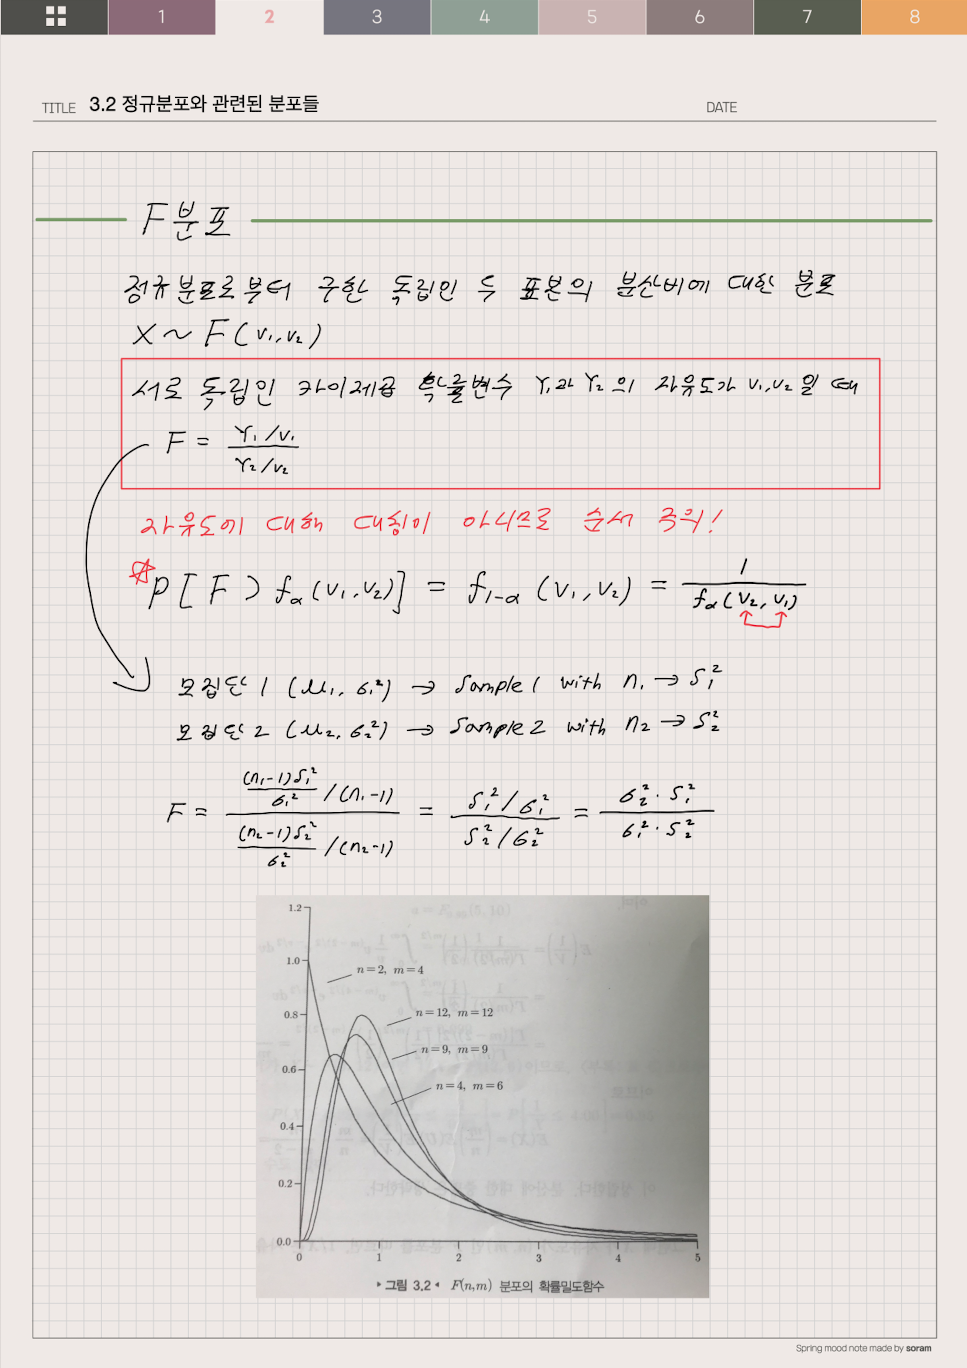 1 2 3 4 5 6 7 8
TITLE 3.2 정규분포와 관련된 분포들 DATE
F분포
정규분포로부터 구한 독립인 두 표본의 분산비에 대한 분포
X ~ F(v₁, v₂)
서로 독립인 카이제곱 확률변수 Y₁과 Y₂의 자유도가 v₁, v₂일 때
F = (Y₁/v₁) / (Y₂/v₂)
자유도에 대해 대칭이 아니므로 순서 주의!
☆ P[F > f_α(v₁, v₂)] = f_{1-α}(v₁, v₂) = 1 / f_α(v₂, v₁)
모집단 1 (μ₁, σ₁²) → Sample 1 with n₁ → S₁²
모집단 2 (μ₂, σ₂²) → Sample 2 with n₂ → S₂²
F = ((n₁-1)S₁²/σ₁² / (n₁-1)) / ((n₂-1)S₂²/σ₂² / (n₂-1)) = (S₁²/σ₁²) / (S₂²/σ₂²) = (σ₂²·S₁²) / (σ₁²·S₂²)
1.2
1.0
n=2, m=4
0.8
n=12, m=12
n=9, m=9
0.6
n=4, m=6
0.4
0.2
0.0
0 1 2 3 4 5
그림 3.2 F(n,m) 분포의 확률밀도함수
Spring mood note made by soram